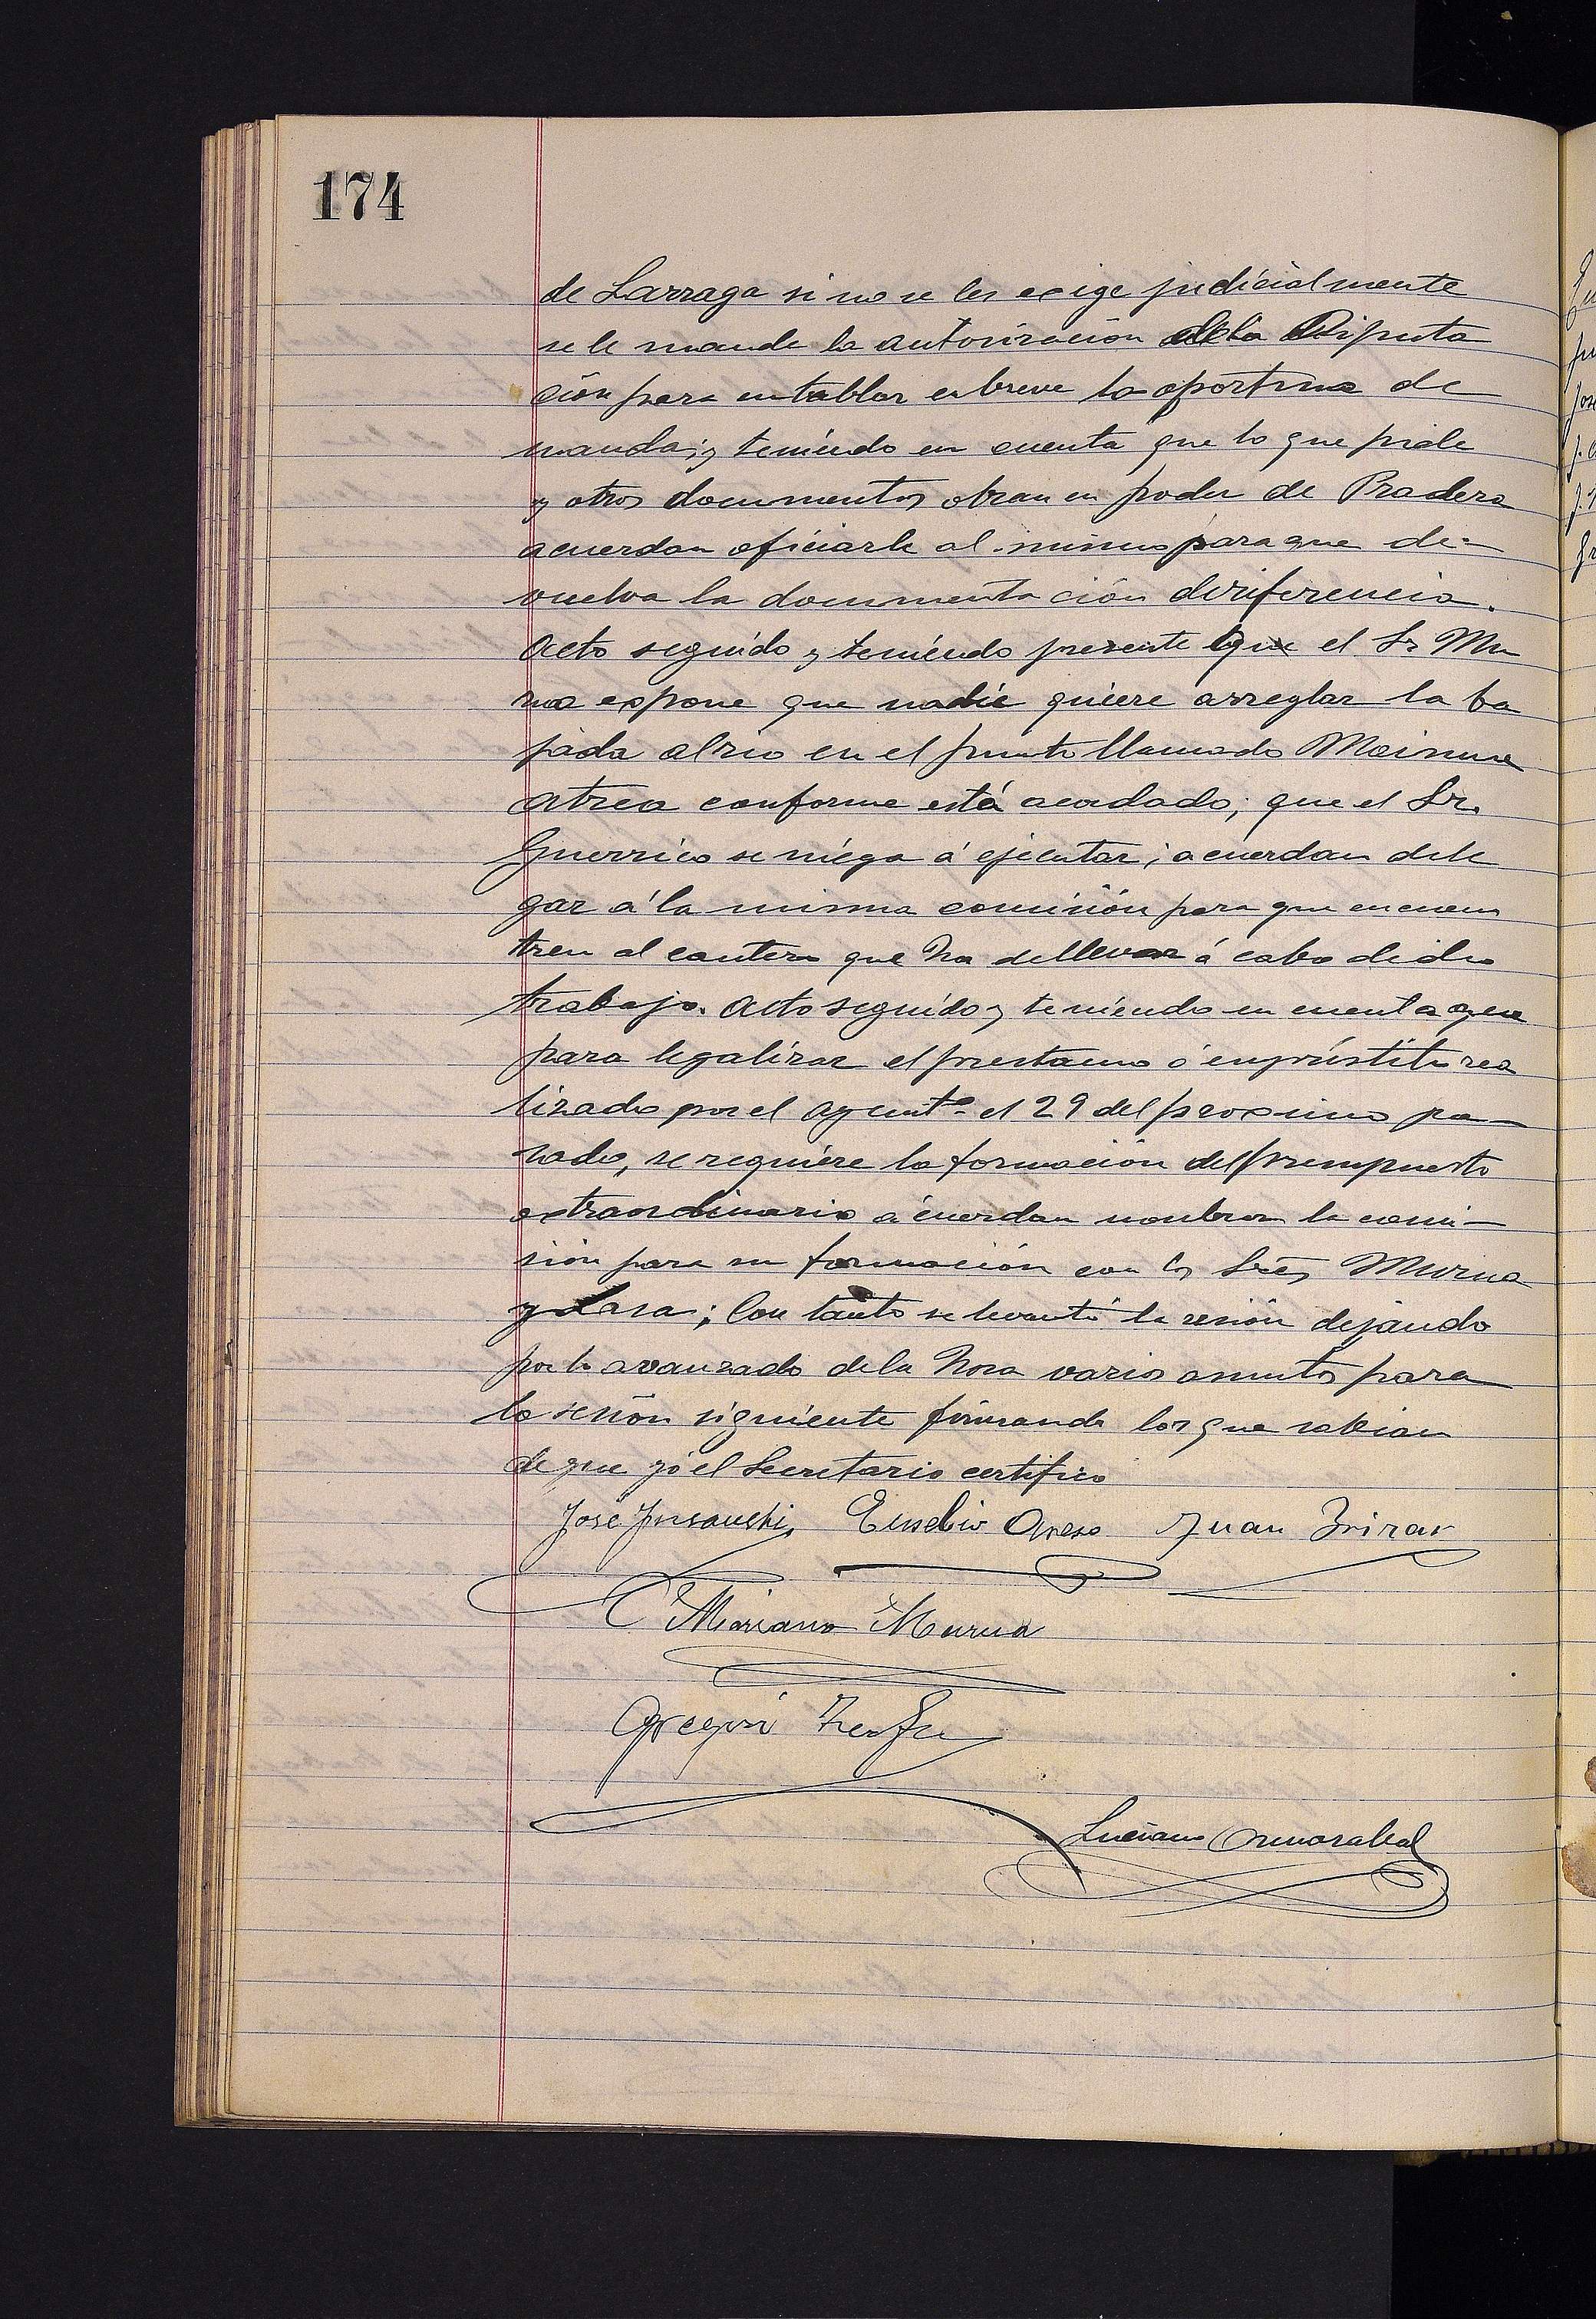 174
de Larraga si no se les exige judicialmente
se le mande la autorización de la Diputa
ción para entablar en breve la oportuna de
manda; y teniendo en cuenta que lo que pide
y otros documentos obran en poder de Pradera
acuerdan oficiarle al mismo para que de-
vuelva la documentación de referencia.
Acto seguido y teniendo presente que el Sr Mu
rua expone que nadie quiere arreglar la ba
jada al rio en el punto llamado
atrea conforme está acordado; que el Sr.
Guerrico se niega á ejecutar; acuerdan dele
gar á la misma comisión para que encuen
tren al cantero que ha de llevar á cabo dicho
trabajo. Acto seguido y teniendo en cuenta que
para legalizar el prestamo ó empréstito rea
lizado por el ayuntº el 29 del proximo pa-
sado, se requiere la formación del presupuesto
extraordinario acuerdan nombrar la comi-
sión para su formación con los Sres Murua
y Lasa; Con tanto se levantó la sesión dejando
por lo avanzado de la hora varios asuntos para
la sesión siguiente firmando los que sabian
de que yó el Secretario certifico
José Eusebio Juan
Mariano Murua
Luciano